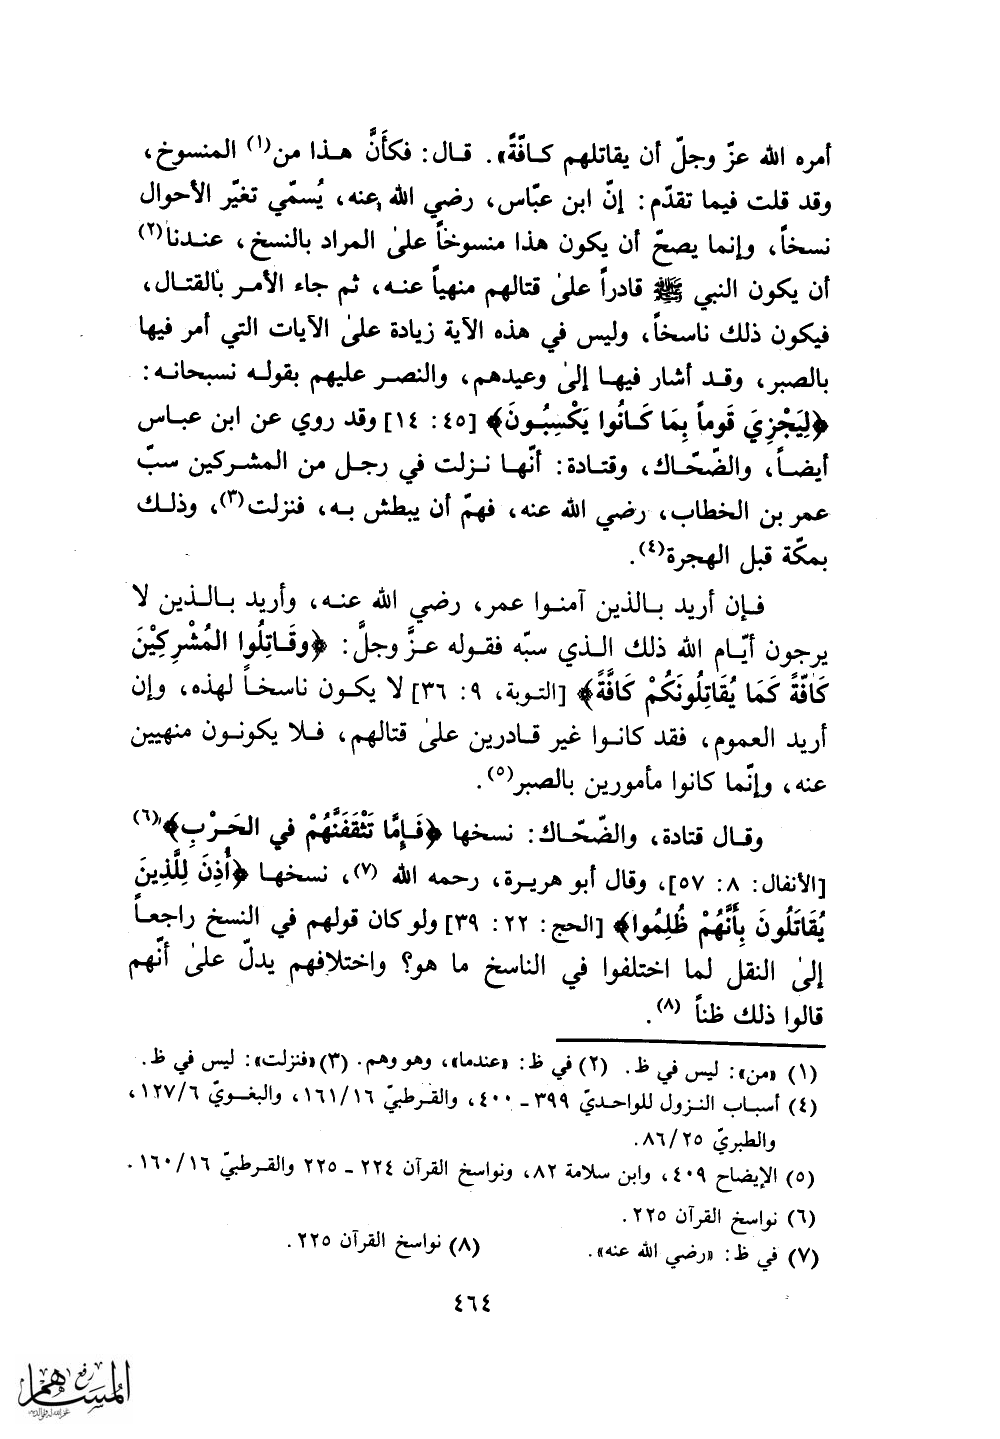 أمره الله عزّ وجلّ أن يقاتلهم كافّةً». قال: فكأنَّ هذا من(١) المنسوخ،
وقد قلت فيما تقدّم: إنّ ابن عبّاس، رضي الله عنه، يُسمّي تغيّر الأحوال
نسخاً، وإنما يصحّ أن يكون هذا منسوخاً علىٰ المراد بالنسخ، عندنا(٢)
أن يكون النبي ﷺ قادراً علىٰ قتالهم منهياً عنه، ثم جاء الأمر بالقتال،
فيكون ذلك ناسخاً، وليس في هذه الآية زيادة علىٰ الآيات التي أمر فيها
بالصبر، وقد أشار فيها إلىٰ وعيدهم، والنصر عليهم بقوله نسبحانه:
﴿لِيَجْزِيَ قَوماً بِمَا كَانُوا يَكْسِبُونَ﴾ [٤٥: ١٤] وقد روي عن ابن عباس
أيضاً، والضّحّاك، وقتادة: أنّها نزلت في رجل من المشركين سبّ
عمر بن الخطاب، رضي الله عنه، فهمّ أن يبطش به، فنزلت(٣)، وذلك
بمكّة قبل الهجرة(٤).
فإن أريد بالذين آمنوا عمر، رضي الله عنه، وأريد بالذين لا
يرجون أيّام الله ذلك الذي سبّه فقوله عزَّ وجلَّ: ﴿وقَاتِلُوا المُشْرِكِيْنَ
كَافّةً كَمَا يُقَاتِلُونَكُمْ كَافَّةً﴾ [التوبة، ٩: ٣٦] لا يكون ناسخاً لهذه، وإن
أريد العموم، فقد كانوا غير قادرين علىٰ قتالهم، فلا يكونون منهيين
عنه، وإنّما كانوا مأمورين بالصبر(٥).
وقال قتادة، والضّحّاك: نسخها ﴿فَإِمَّا تَثْقَفَنَّهُمْ في الحَرْبِ﴾(٦)
[الأنفال: ٨: ٥٧]، وقال أبو هريرة، رحمه الله (٧)، نسخها ﴿أُذِنَ لِلَّذِينَ
يُقَاتَلُونَ بِأَنَّهُمْ ظُلِمُوا﴾ [الحج: ٢٢: ٣٩] ولو كان قولهم في النسخ راجعاً
إلىٰ النقل لما اختلفوا في الناسخ ما هو؟ واختلافهم يدلّ علىٰ أنّهم
قالوا ذلك ظناً (٨).
(١) «من»: ليس في ظ. (٢) في ظ: «عندما»، وهو وهم. (٣) «فنزلت»: ليس في ظ.
(٤) أسباب النزول للواحديّ ٣٩٩ ـ ٤٠٠، والقرطبيّ ١٦١/١٦، والبغويّ ١٢٧/٦،
والطبريّ ٨٦/٢٥.
(٥) الإيضاح ٤٠٩، وابن سلامة ٨٢، ونواسخ القرآن ٢٢٤ ـ ٢٢٥ والقرطبيّ ١٦٠/١٦.
(٦) نواسخ القرآن ٢٢٥.
(٧) في ظ: «رضي الله عنه».
(٨) نواسخ القرآن ٢٢٥.
٤٦٤
رفع
المساهم